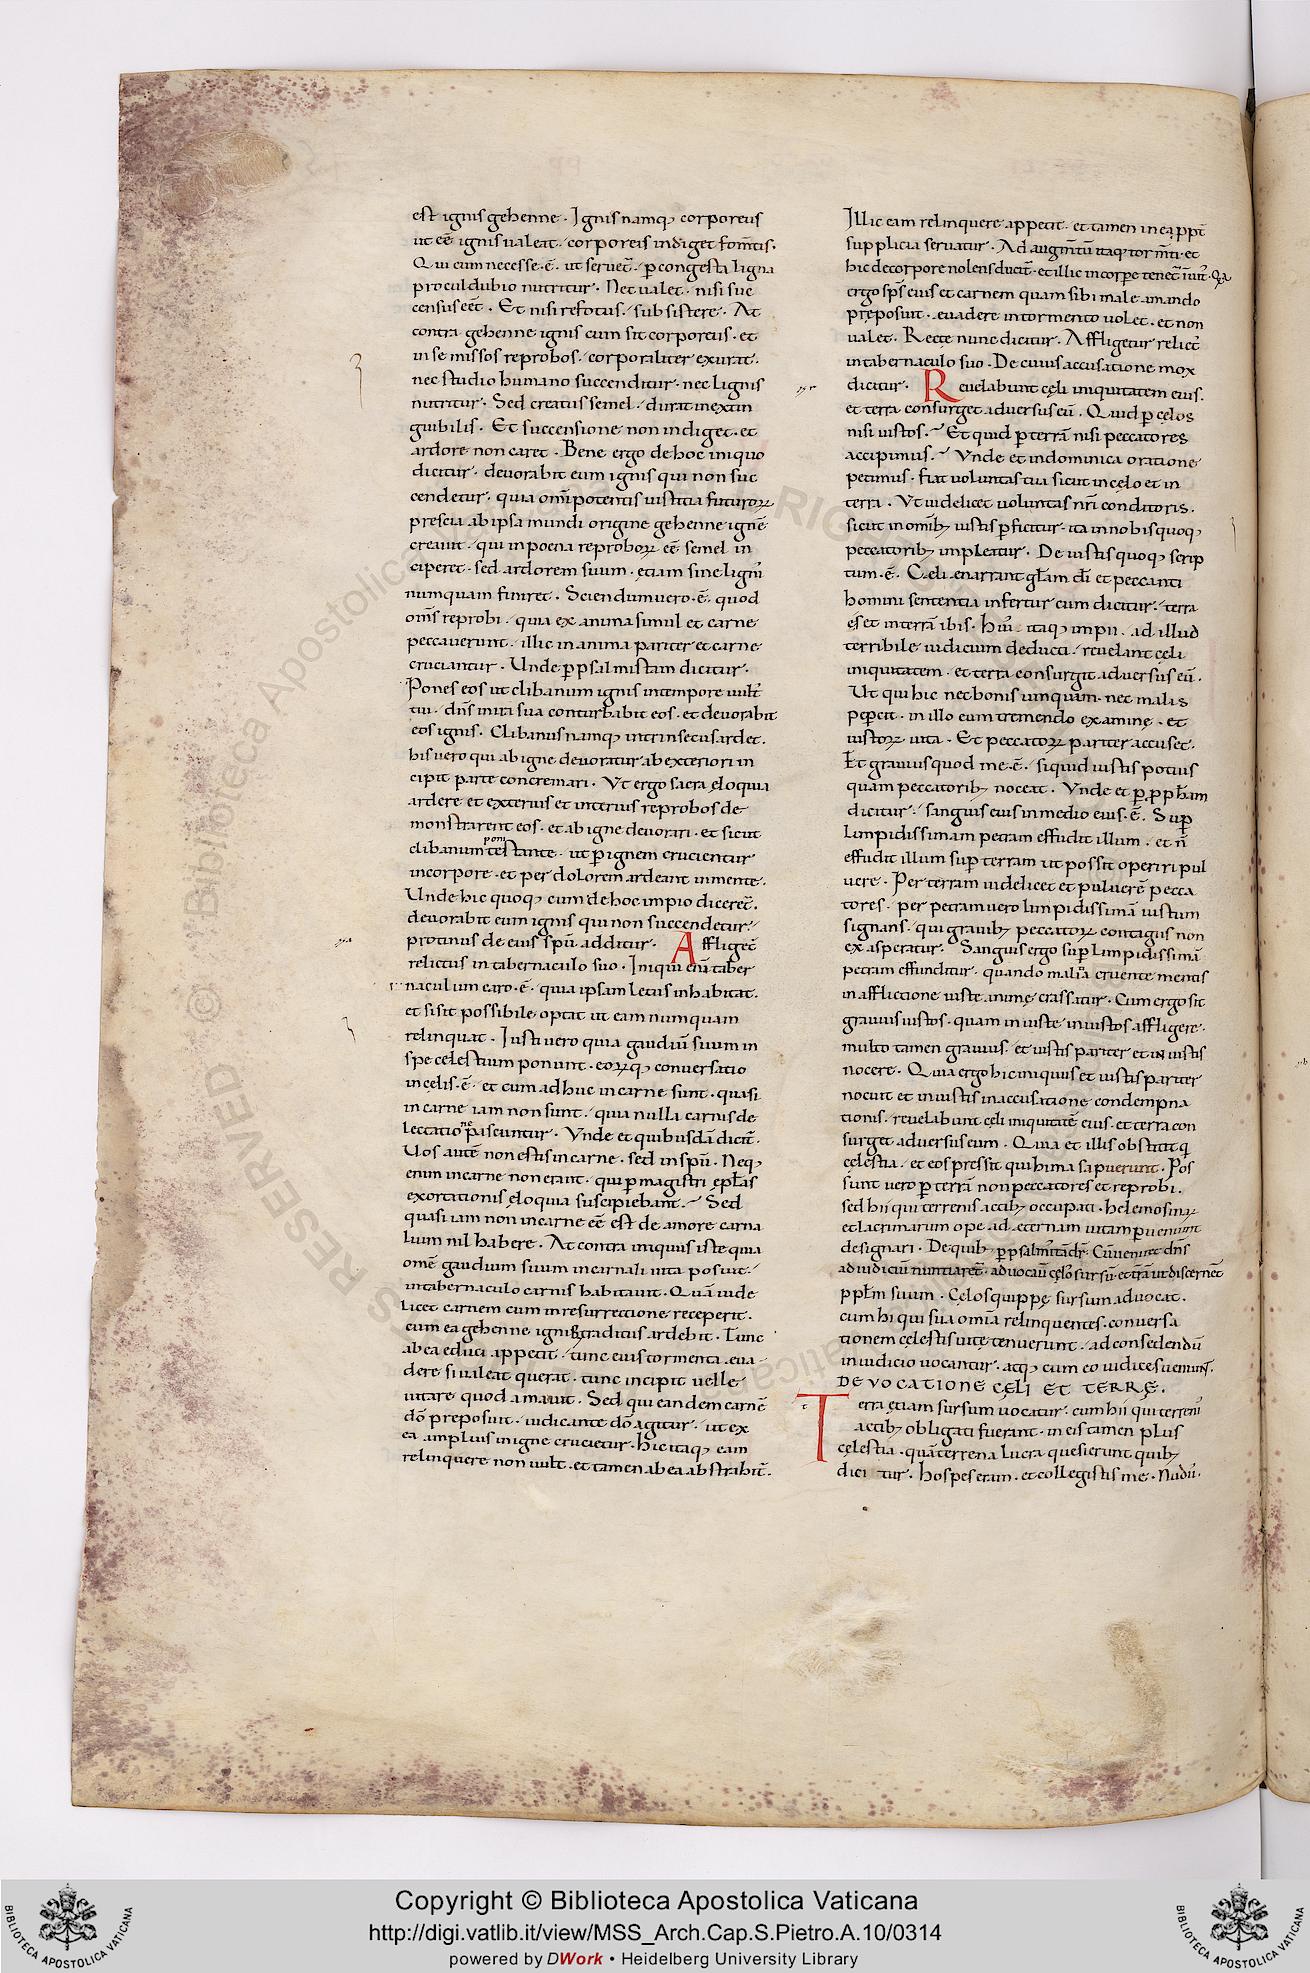 est ignis gehenne. Ignis namq; corporeus
ut eē ignis ualeat. corporeis indiget fom̄tis.
Qui cum necesse .ē. ut seruet̄. p̱ congesta ligna
procul dubio nutritur. Nec ualet. nisi suc
census eēt. Et nisi refotus. subsistere. At
contra gehenne ignis cum sit corporeus. et
in se missos reprobos. corporaliter exurat.
nec studio humano succenditur. nec lignis
nutritur. Sed creatus semel. durat inextin
guibilis. Et succensione non indiget. et
ardore non caret. Bene ergo de hoc iniquo
dicitur. deuorabit eum ignis qui non suc
cendetur. quia om̄ipotentis iustitia futuroꝝ
prescia ab ipsa mundi origine gehenne ignē
creauit. qui in poena reproboꝝ eē semel in
ciperet. sed ardorem suum. etiam sine lignis
numquam finiret. Sciendum uero .ē. quod
om̄s reprobi. quia ex anima simul et carne
peccauerunt. illic in anima pariter et carne
cruciantur. Unde p̱ psalmistam dicitur.
Pones eos ut clibanum ignis in tempore uult̄
tui. dn̄s in ira sua conturbabit eos. et deuorabit
eos ignis. Clibanus namq; intrinsecus ardet.
his uero qui ab igne deuoratur ab exteriori in
cipit parte concremari. Vt ergo sacra eloquia
ardere et exterius et interius reprobos de
monstrarent eos. et ab igne deuorari. et sicut
clibanum poni testante. ut p̱ ignem crucientur
in corpore. et per dolorem ardeant in mente.
Unde hic quoq; cum de hoc impio diceret̄.
deuorabit eum ignis qui non succendetur.
protinus de eius sp̄u additur. Affliget̄
relictus in tabernaculo suo. Iniqui eni̅ taber
naculum caro .ē. quia ipsam letus inhabitat.
et si sit possibile optat ut eam numquam
relinquat. Iusti uero quia gaudiū suum in
spe celestium ponunt. eoꝝq; conuersatio
in celis .ē. et cum adhuc in carne sunt. quasi
in carne iam non sunt. quia nulla carnis de
lectatione pascuntur. Vnde et quibusdā dicit̄.
Uos autē non estis in carne. sed in spū. Neq;
enim in carne non erant. qui p̱ magistri ep̄las
exortationis eloquia suscipiebant. Sed
quasi iam non in carne eē est de amore carna
lium nil habere. At contra iniquus iste quia
omē gaudium suum in carnali uita posuit.
in tabernaculo carnis habitauit. Quā uide
licet carnem cum in resurrectione receperit.
cum ea gehenne ignibus traditus ardebit. Tunc
ab ea educi appetit. tunc eius tormenta eua
dere si ualeat querat. tunc incipit uelle
uitare quod amauit. Sed qui eandem carnē
dō preposuit. iudicante dō agitur. ut ex
ea amplius in igne crucietur. Hic itaq; eam
relinquere non uult. et tamen ab ea abstrahit̄.
Illic eam relinquere appetit. et tamen in ea ppt̄
supplicia seruatur. Ad augm̄tū itaq; torm̄ti. et
hic de corpore nolens ducit̄. et illic in corp̱e tenet̄ inuit̄. Qa
ergo sp̄s eius et carnem quam sibi male amando
preposuit. euadere in tormento uolet. et non
ualet. Recte nunc dicitur. Affligetur relict̄
in tabernaculo suo. De cuius accusatione mox
dicitur. Reuelabunt cęli iniquitatem eius.
et terra consurget aduersus eū. Quid p̱ cęlos
nisi iustos. Et quid p̱ terrā nisi peccatores
accipimus. Vnde et in dominica oratione
petimus. fiat uoluntas tua sicut in cęlo et in
terra. Vt uidelicet uoluntas nr̄i conditoris.
sicut in omīb; iustis p̱ficitur. ita in nobis quoq;
peccatorib; impleatur. De iustis quoq; scrip
tum .ē. Cęli enarrant gl̄am dī et peccanti
homini sententia infertur cum dicitur. terra
es et in terrā ibis. Hui̅ itaq; impii. ad illud
terribile iudicium deducti. reuelant cęli
iniquitatem. et terra consurgit aduersus eū.
Ut qui hic nec bonis umquam. nec malis
pep̱cit. in illo eum tremendo examine. et
iustoꝝ uita. Et peccatoꝝ pariter accuset.
Et grauius quod me .ē. siquid iustis potius
quam peccatorib; noceat. Vnde et p̱ pph̄am
dicitur. sanguis eius in medio eius .ē. Sup̱
limpidissimam petram effudit illum. et n̄
effudit illum sup̱ terram ut possit operiri pul
uere. Per terram uidelicet et puluerē pecca
tores. per petram uero limpidissimā iustum
signans. qui grauib; peccatoꝝ contagiis non
ex asperatur. Sanguis ergo sup̱ limpidissimā
petram effunditur. quando malitia cruente mentis
in afflictione iuste anime crassatur. Cum ergo sit
grauius iustos. quam iniuste iniustos affligere.
multo tamen grauius. et iustis pariter et iniustis
nocere. Quia ergo hic iniquus et iustis pariter
nocuit et iniustis in accusatione condempna
tionis. reuelabunt cęli iniquitatē eius. et terra con
surget aduersus eum. Quia et illis obstitit q
cęlestia. et eos pressit qui hima sapuerunt. Pos
sunt uero p̱ terrā non peccatores et reprobi.
sed hii qui terrenis actib; occupati. helemosinaꝝ
et lacrimarum ope ad ęternam uitam p̱ueniunt
designari. De quib; p̱ psalmistā dr̄. Cū ueniret dn̄s
ad iudiciū nuntiaret̄. aduocauit cęlos sursū. et t̄rā ut discerneret
pp̄lm suum. Cęlos quippe sursum aduocat.
cum hi qui sua omīa relinquentes. conuersa
tionem cęlestis uite tenuerunt. ad consedendū
in iudicio uocantur. atq; cum eo iudices ueniunt.
DE VOCATIONE CĘLI ET TERRĘ.
Terra etiam sursum uocatur. cum hii qui terrenis
actib; obligati fuerant. in eis tamen plus
cęlestia. quā terrena lucra quesierunt quib;
dicitur. Hospes eram. et collegistis me. Nudū.
Copyright © Biblioteca Apostolica Vaticana
http://digi.vatlib.it/view/MSS_Arch.Cap.S.Pietro.A.10/0314
powered by DWork • Heidelberg University Library